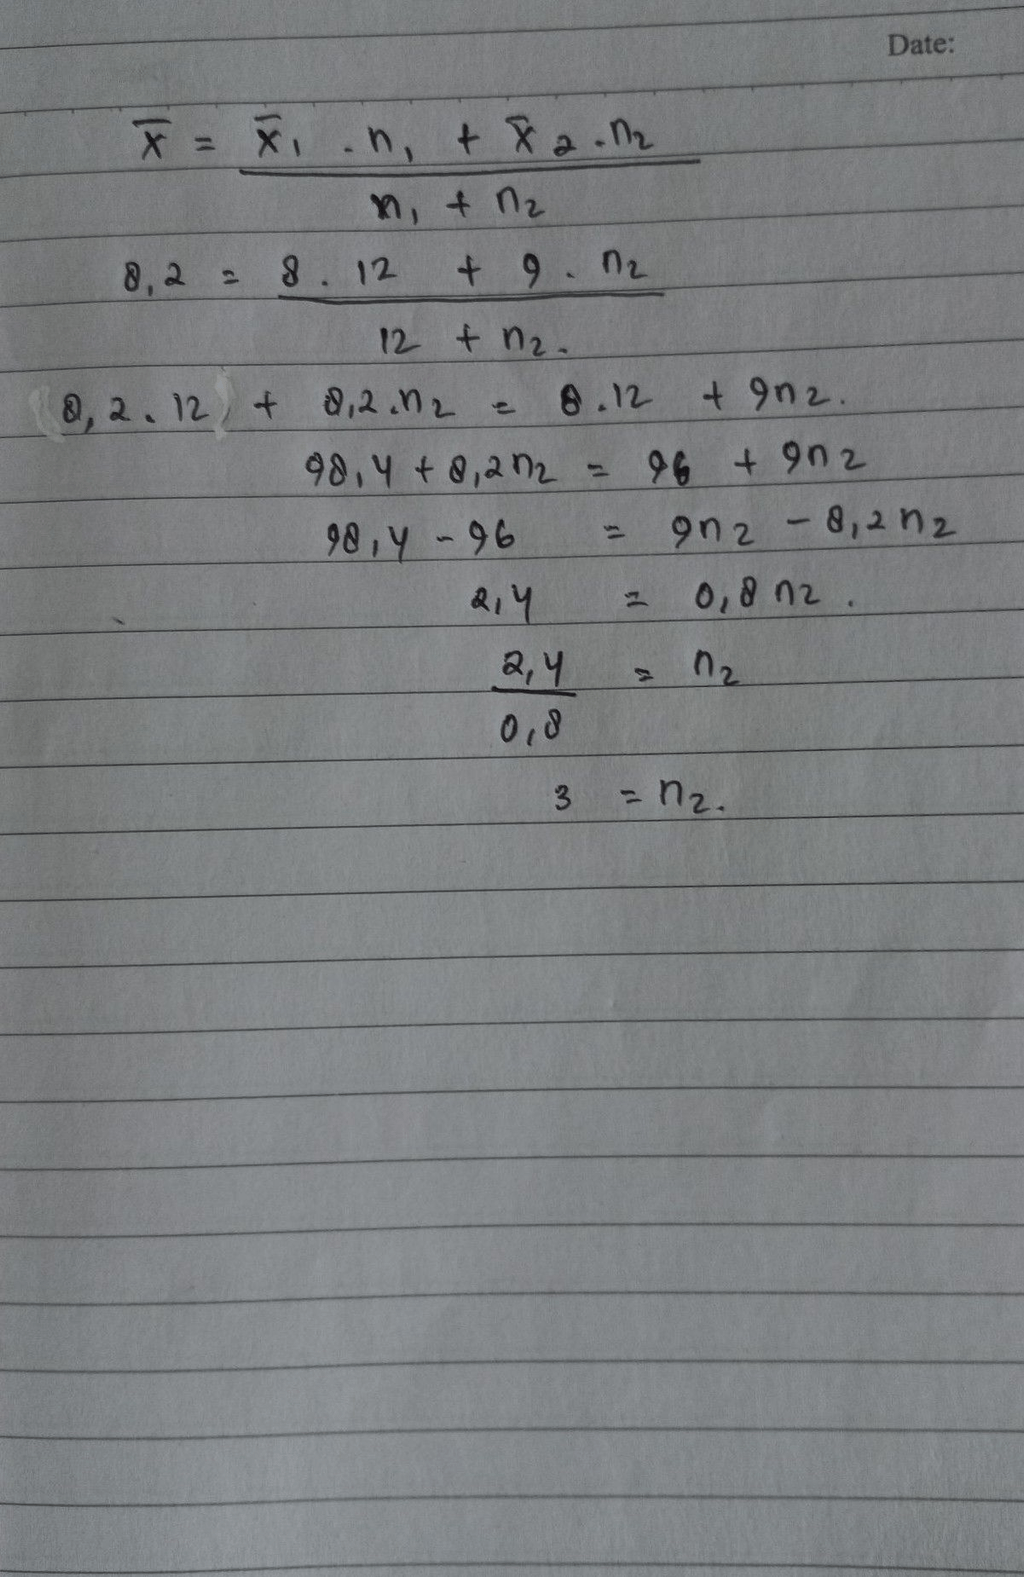 Date:
x̄ = x̄₁ . n₁ + x̄₂ . n₂
n₁ + n₂
8,2 = 8 . 12 + 9 . n₂
12 + n₂.
8,2 . 12 + 8,2 . n₂ = 8 . 12 + 9n₂.
98,4 + 8,2n₂ = 96 + 9n₂
98,4 - 96 = 9n₂ - 8,2n₂
2,4 = 0,8 n₂.
2,4 = n₂
0,8
3 = n₂.